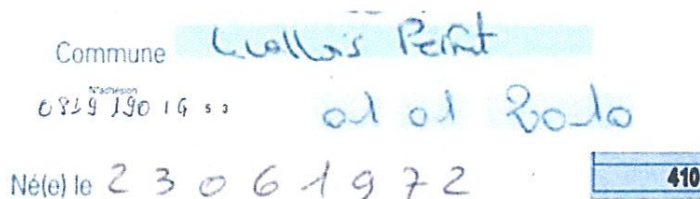 Commune Levallois Perret
N°adhésion
0819 190 16 53 01 01 2010
Né(e) le 23061972 410